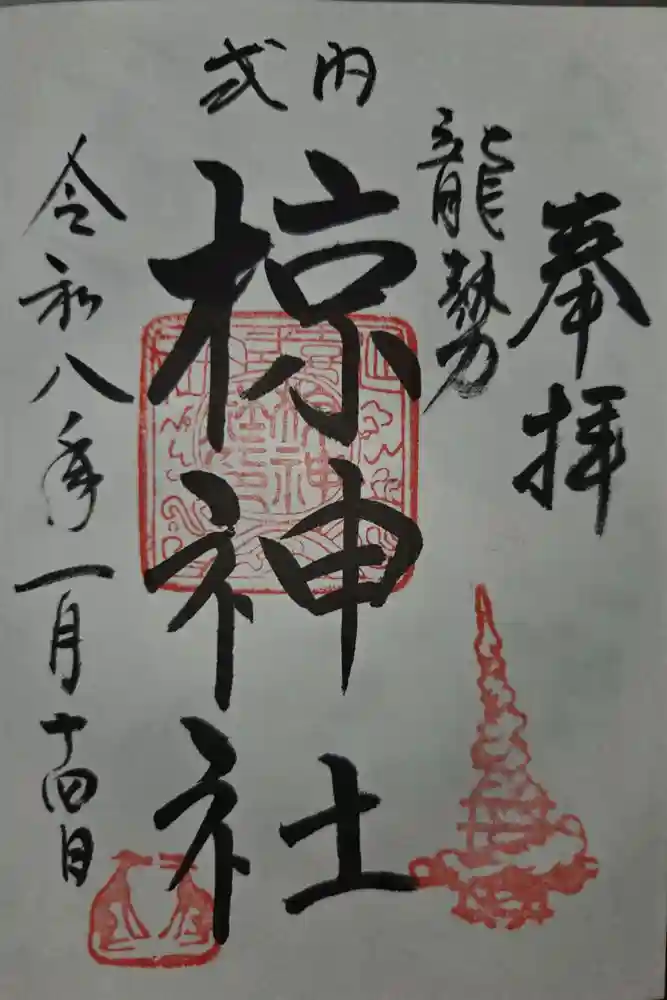 奉拝
龍勢
式内
椋神社
令和八年一月十四日